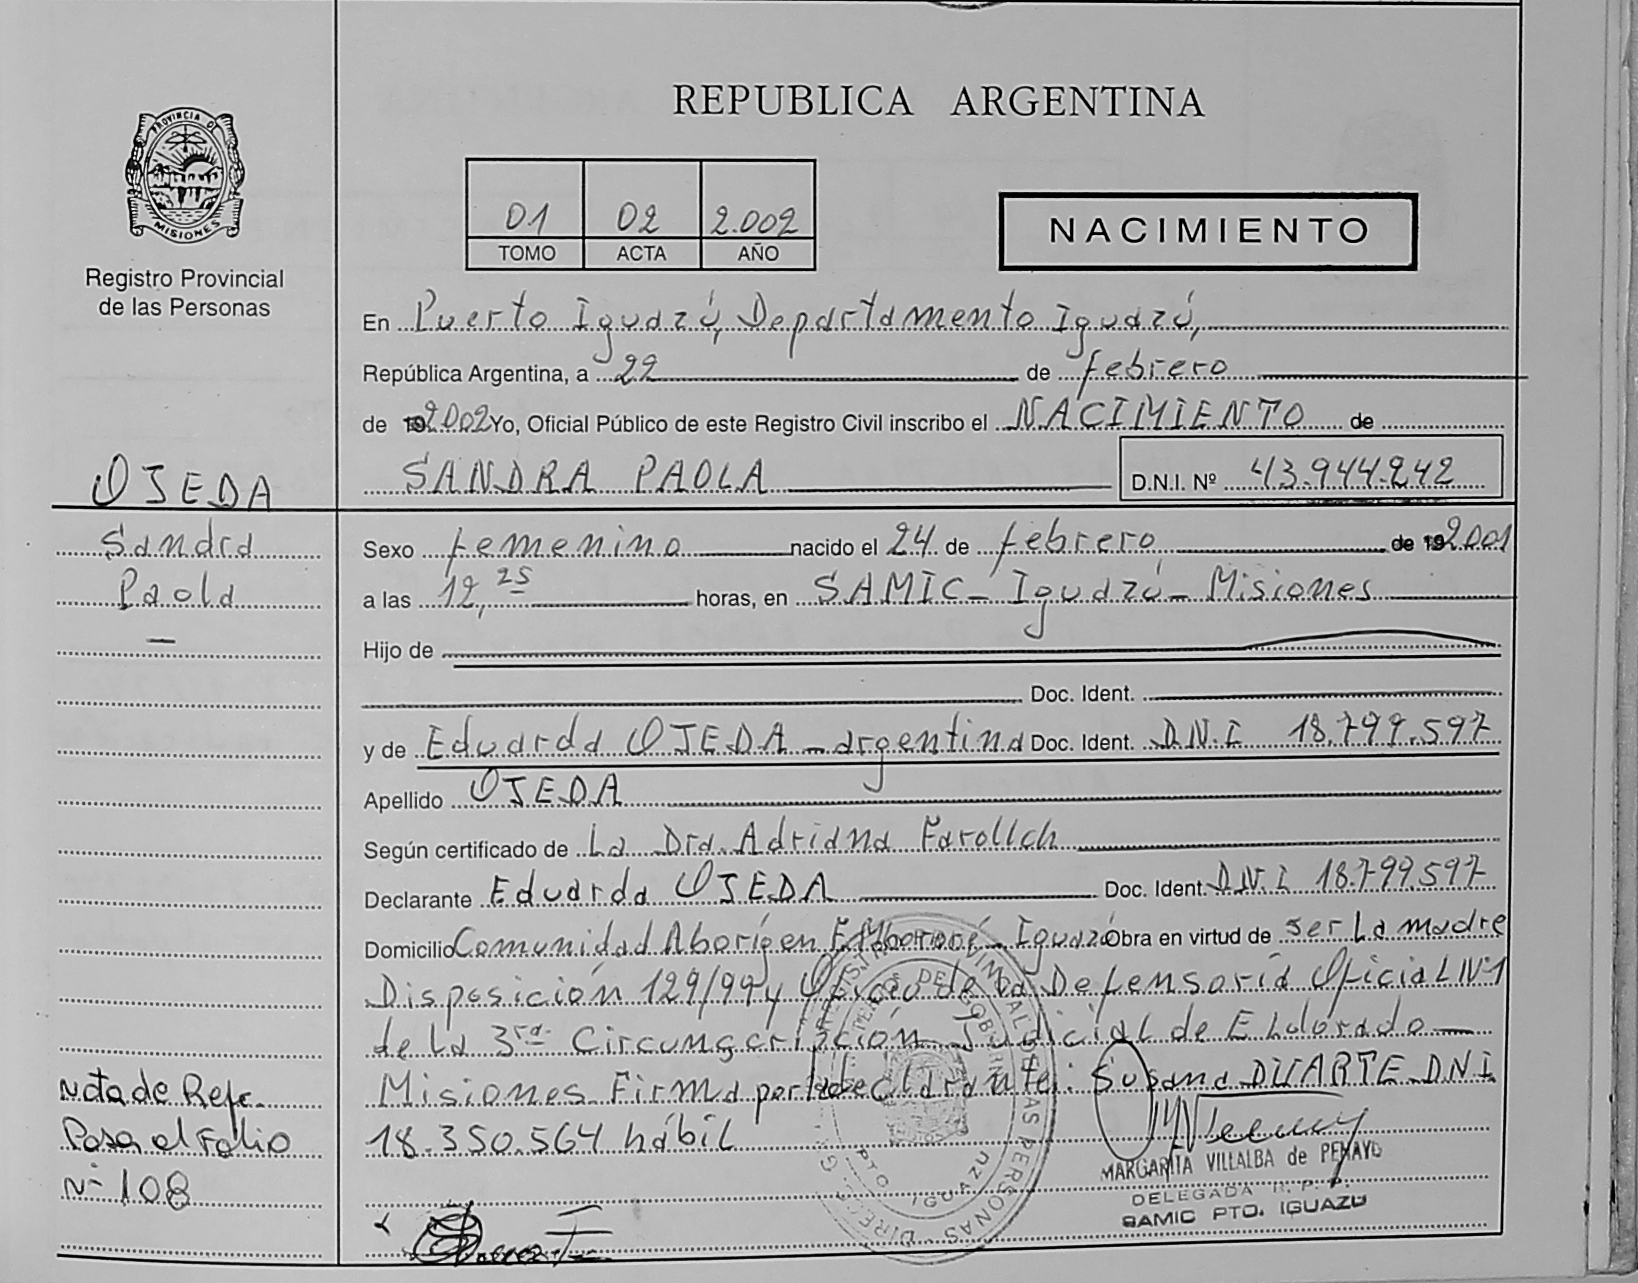 REPUBLICA ARGENTINA
PROVINCIA DE
MISIONES
Registro Provincial
de las Personas
01 02 2.002
TOMO ACTA AÑO
NACIMIENTO
En Puerto Iguazú, Departamento Iguazú,
República Argentina, a 22 de febrero
de 192002 Yo, Oficial Público de este Registro Civil inscribo el NACIMIENTO de
SANDRA PAOLA D.N.I. Nº 43.944.242
OJEDA
Sandra
Paola
—
Sexo femenino nacido el 24 de febrero de 192001
a las 12,25 horas, en SAMIC - Iguazú - Misiones
Hijo de
Doc. Ident.
y de Eduarda OJEDA - argentina Doc. Ident. D.N.I 18.799.597
Apellido OJEDA
Según certificado de La Dra. Adriana Farollch
Declarante Eduarda OJEDA Doc. Ident. D.N.I 18.799.597
Domicilio Comunidad Aborígen Iguazú Obra en virtud de ser La madre
Disposición 129/99 y Oficio de La Defensoría Oficial Nº1
de La 3ra. Circunscripción Judicial de Eldorado
Misiones Firma por la declarante: Susana DUARTE D.N.I
18.350.564 hábil
Nota de Refe.
Pasa al Folio
Nº 108
MARGARITA VILLALBA de PENAYO
DELEGADA R. P. P.
SAMIC PTO. IGUAZU